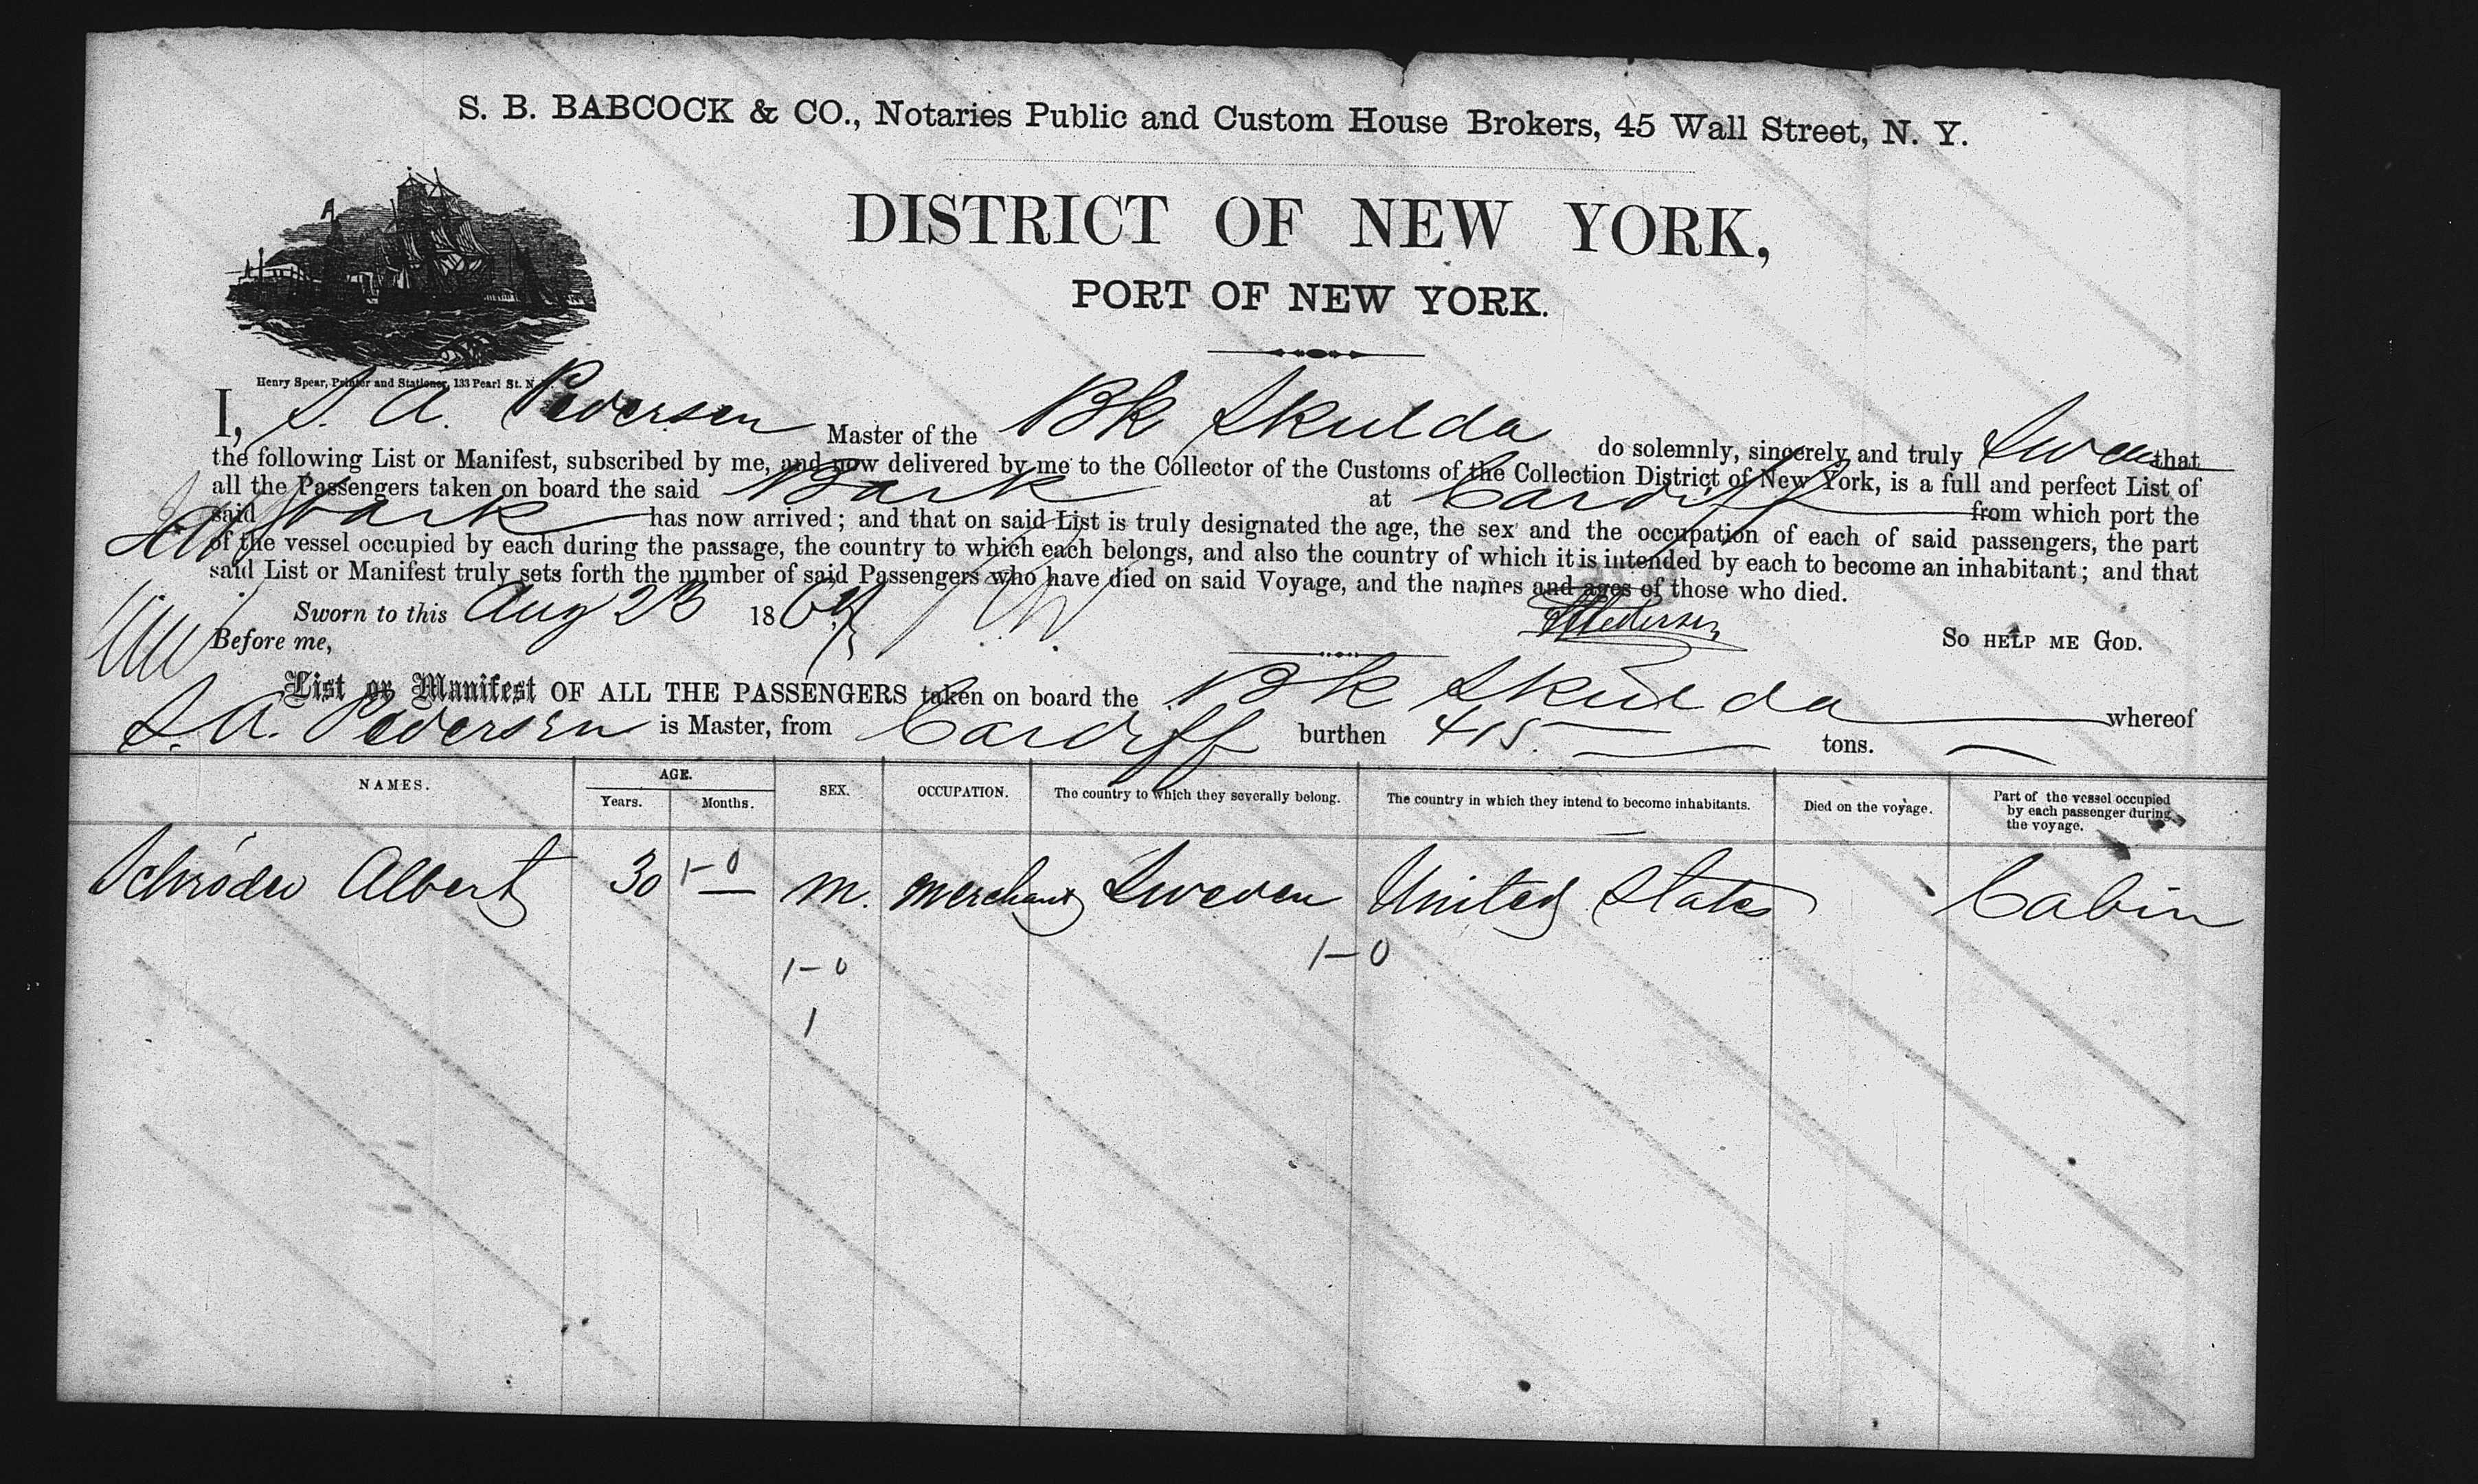 S. B. BABCOCK & CO., Notaries Public and Custom House Brokers, 45 Wall Street, N. Y.
DISTRICT OF NEW YORK,
PORT OF NEW YORK.
Henry Spear, Printer and Stationer, 133 Pearl St. N. Y.
I, S. A. Pedersen Master of the Bk Skulda do solemnly, sincerely and truly Swear that
the following List or Manifest, subscribed by me, and now delivered by me to the Collector of the Customs of the Collection District of New York, is a full and perfect List of
all the Passengers taken on board the said Bark at Cardiff from which port the
said Bark has now arrived; and that on said List is truly designated the age, the sex and the occupation of each of said passengers, the part
of the vessel occupied by each during the passage, the country to which each belongs, and also the country of which it is intended by each to become an inhabitant; and that
said List or Manifest truly sets forth the number of said Passengers who have died on said Voyage, and the names and ages of those who died.
Sworn to this Aug 26 1869
Before me,
SO HELP ME GOD.
List or Manifest OF ALL THE PASSENGERS taken on board the Bk Skulda whereof
S. A. Pedersen is Master, from Cardiff burthen 415 tons.
NAMES. AGE. Years. Months. SEX. OCCUPATION. The country to which they severally belong. The country in which they intend to become inhabitants. Died on the voyage. Part of the vessel occupied by each passenger during the voyage.
Schröder Albert 30 1-0 m. merchant Sweden United States Cabin
1-0 1-0
1